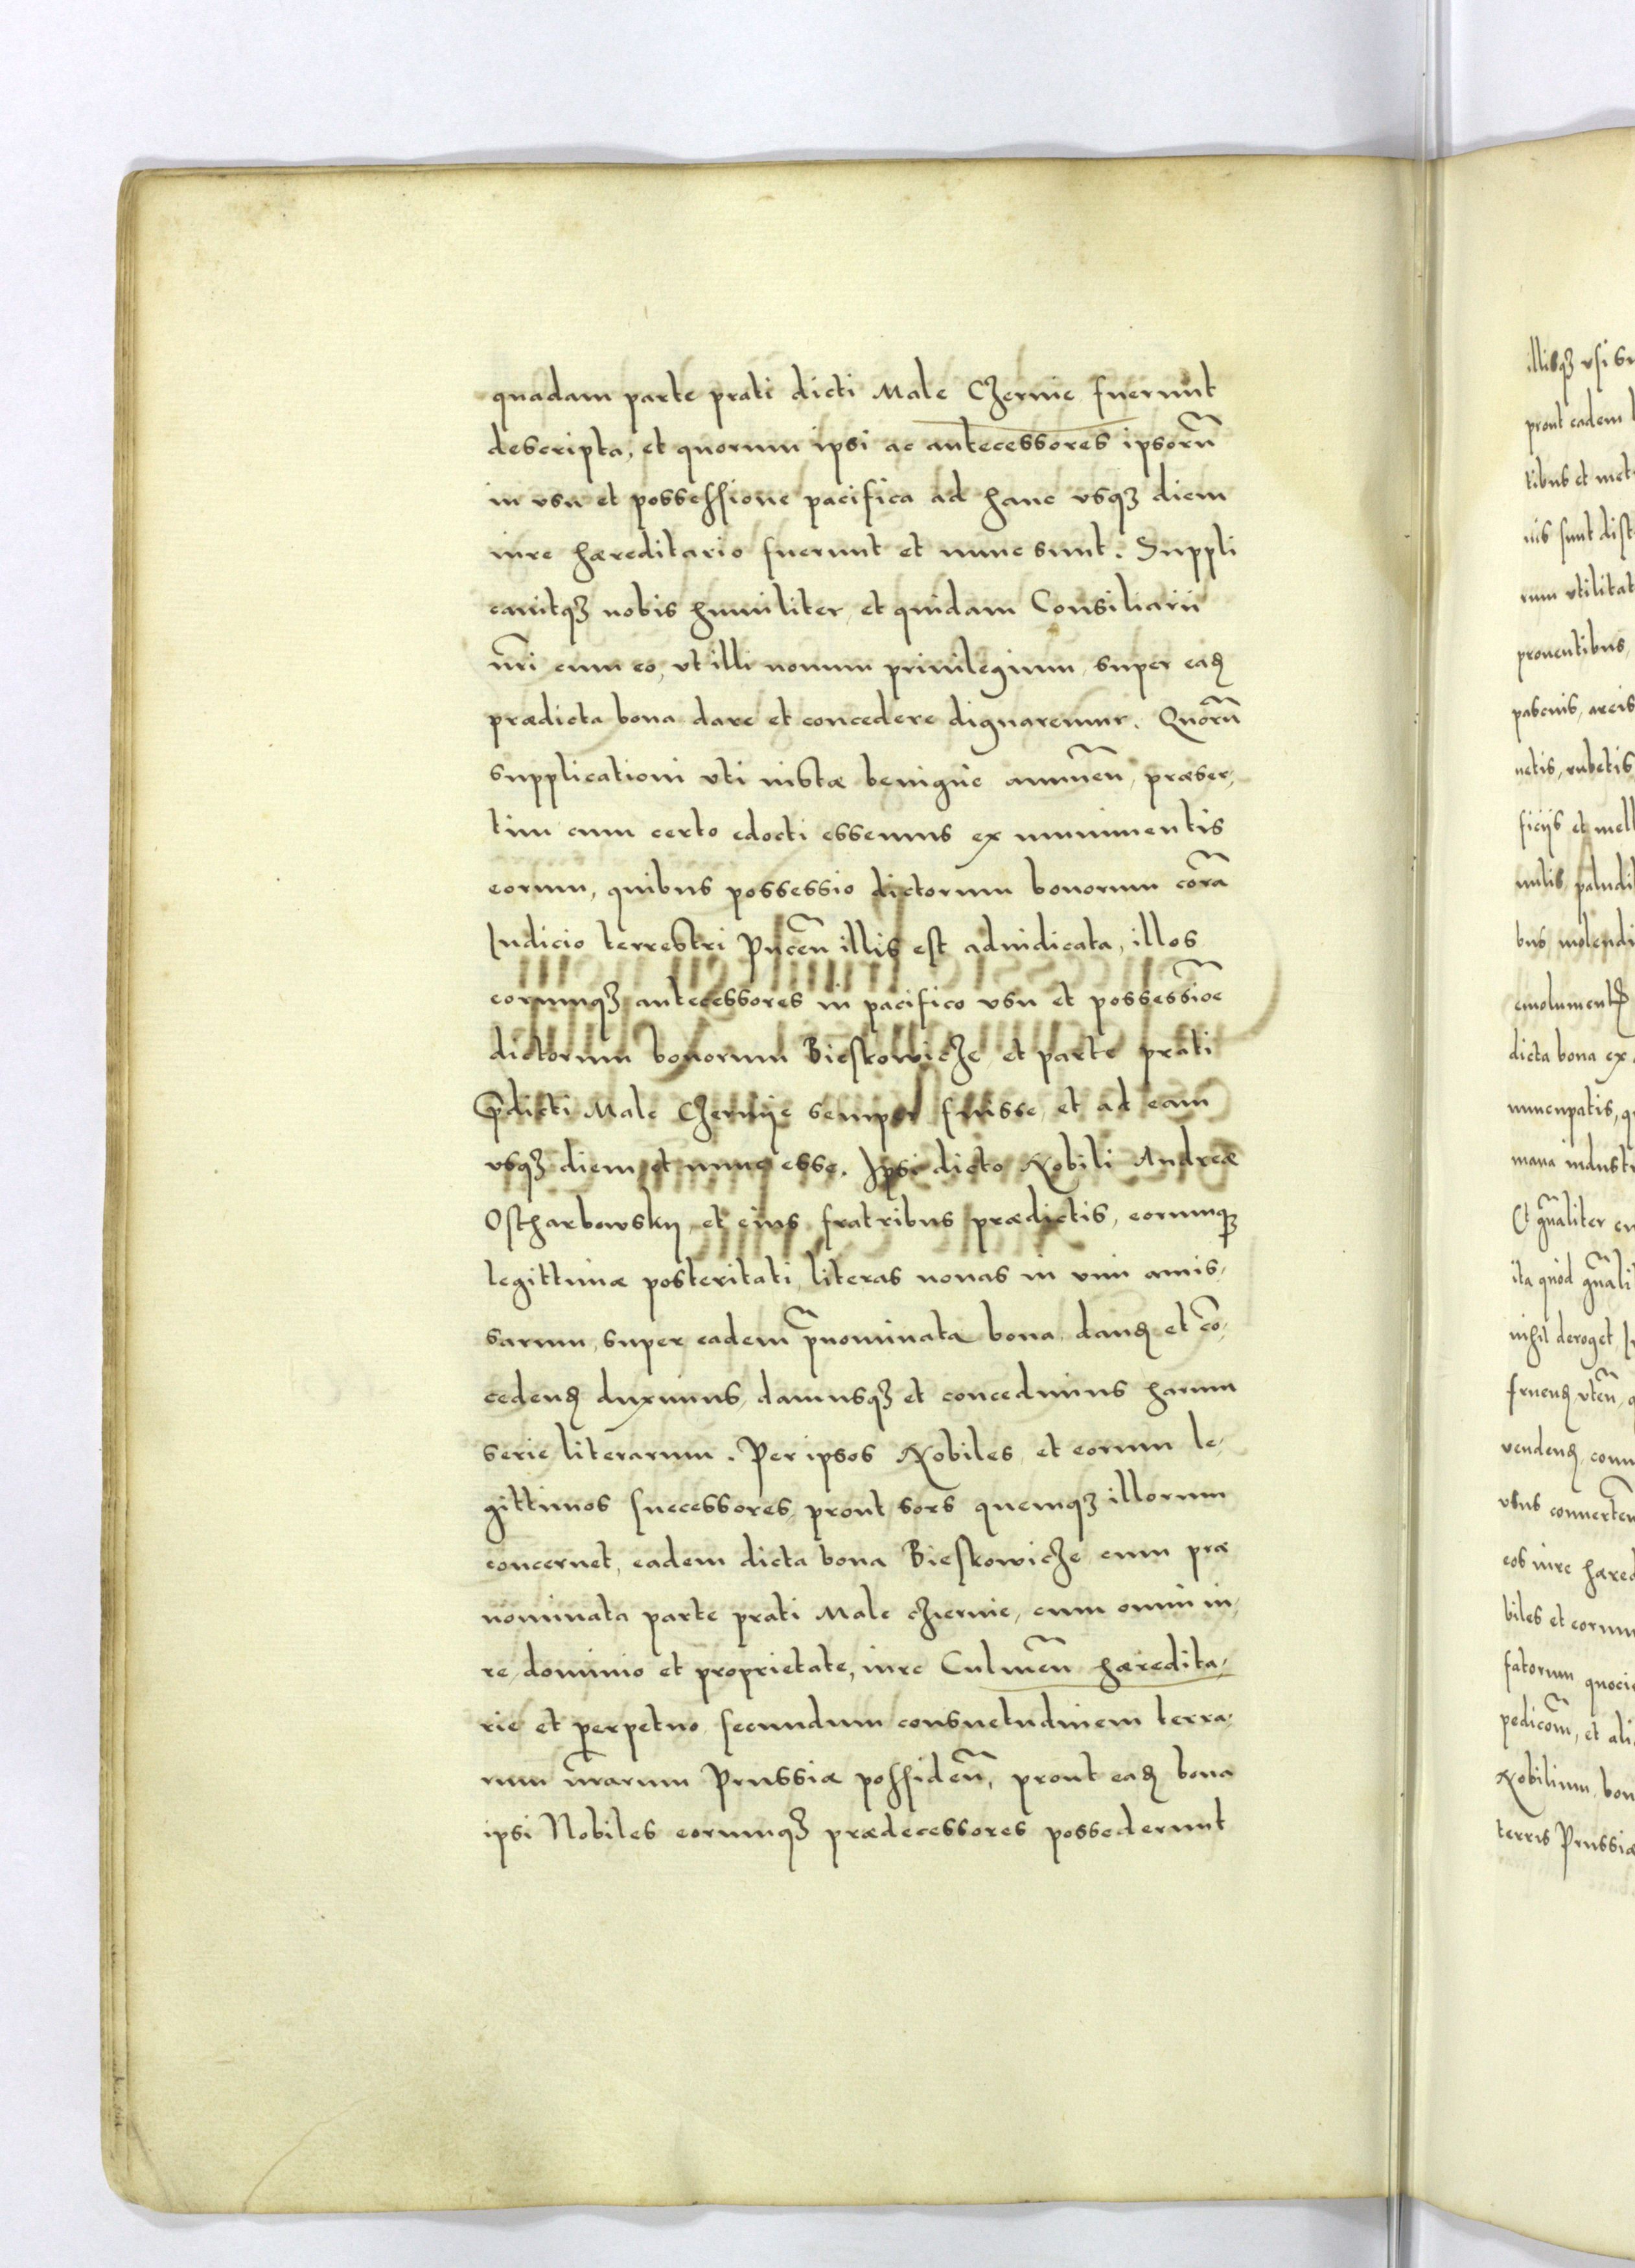 quadam parte prati dicti Male Czernie fuerunt
descripta, et quorum ipsi ac antecessores ipsorũ
in vsu et possessione pacifica ad hanc vsqȝ diem
iure hæreditario fuerunt et nunc sunt. Suppli
cauitqȝ nobis humiliter et quidam Consiliarii
nr̃i cum eo, vt illi nouum priuilegium super eadꝫ
prædicta bona dare et concedere dignaremur. Quorũ
supplicationi vti iustæ benigne annuen̄, præser,
tim cum certo edocti essemus ex munimentis
eorum, quibus possessio dictorum bonorum corã
Iudicio terrestri Pucen̄ illis est adiudicata, illos
eorumqȝ antecessores in pacifico vsu et possessiõe
dictorum bonorum Bieskowicze et parte prati
p̃dicti Male Czernije semper fuisse, et ad eam
vsqȝ diem et nunc esse. Ipsi dicto Nobili Andreæ
Ostharbowskij et eius fratribus prædictis, eorumqȝ
legittimæ posteritati literas nouas in vim amis,
sarum, super eadem p̃nominata bona dandꝫ et cõ,
cedendꝫ duximus, damusqȝ et concedimus harum
serie literarum. Per ipsos Nobiles et eorum le,
gittimos successores, prout sors quemqȝ illorum
concernet, eadem dicta bona Bieskowicze cum præ
nominata parte prati Male Czernie, cum omni iu,
re dominio et proprietate, iure Culmen̄ hæredita,
rie et perpetuo secundum consuetudinem terra,
rum nr̃arum Prussiæ possiden̄, prout eadꝫ bona
ipsi Nobiles eorumqȝ prædecessores possederunt
illisqȝ vsi su
prout eadem
tibus et met
sunt dist
rum vtilitat
prouentibus,
pascuis, arcis
netis, rubetis
ficijs et mell
paludi
bus molendi
dicta bona ex
nuncupatis, q
mana industr
Et gñaliter
ita quod gñali
nihil deroget
fruendꝫ vten̄
vendendꝫ, com
vsus conuerten̄
eos iure hæred
biles et eorum
fatorum
et ali
Nobilium bon
terris Prussiæ